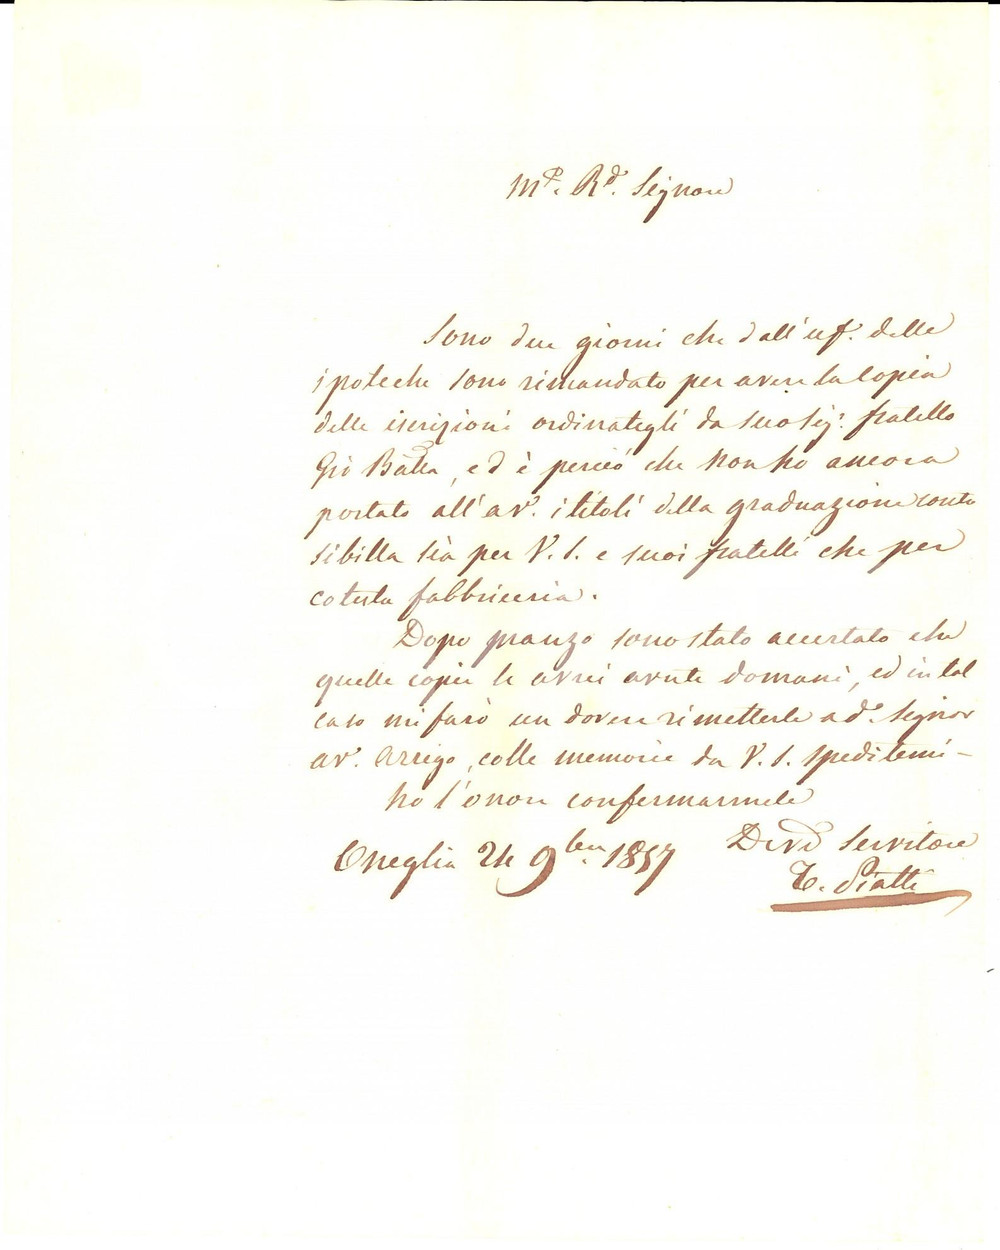 M.to R.do Signore
Sono due giorni che dall'uf.o delle
ipoteche sono rimandato per avere la copia
delle iscrizioni ordinategli da suo Sig.r fratello
Gio Batta, ed è perciò che non ho ancora
portato all'av.o i titoli della graduazione conto
Sibilla sia per V. S. e suoi fratelli che per
cotesta fabbriceria.
Dopo pranzo sono stato accertato che
quelle copie le avrei avute domani, ed in tal
caso mi farò un dovere rimetterle a d.o Signor
av.o Arrigo, colle memorie da V. S. speditemi –
ho l'onore confermarmele
Dev.o Servitore
Oneglia 24 9bre 1857